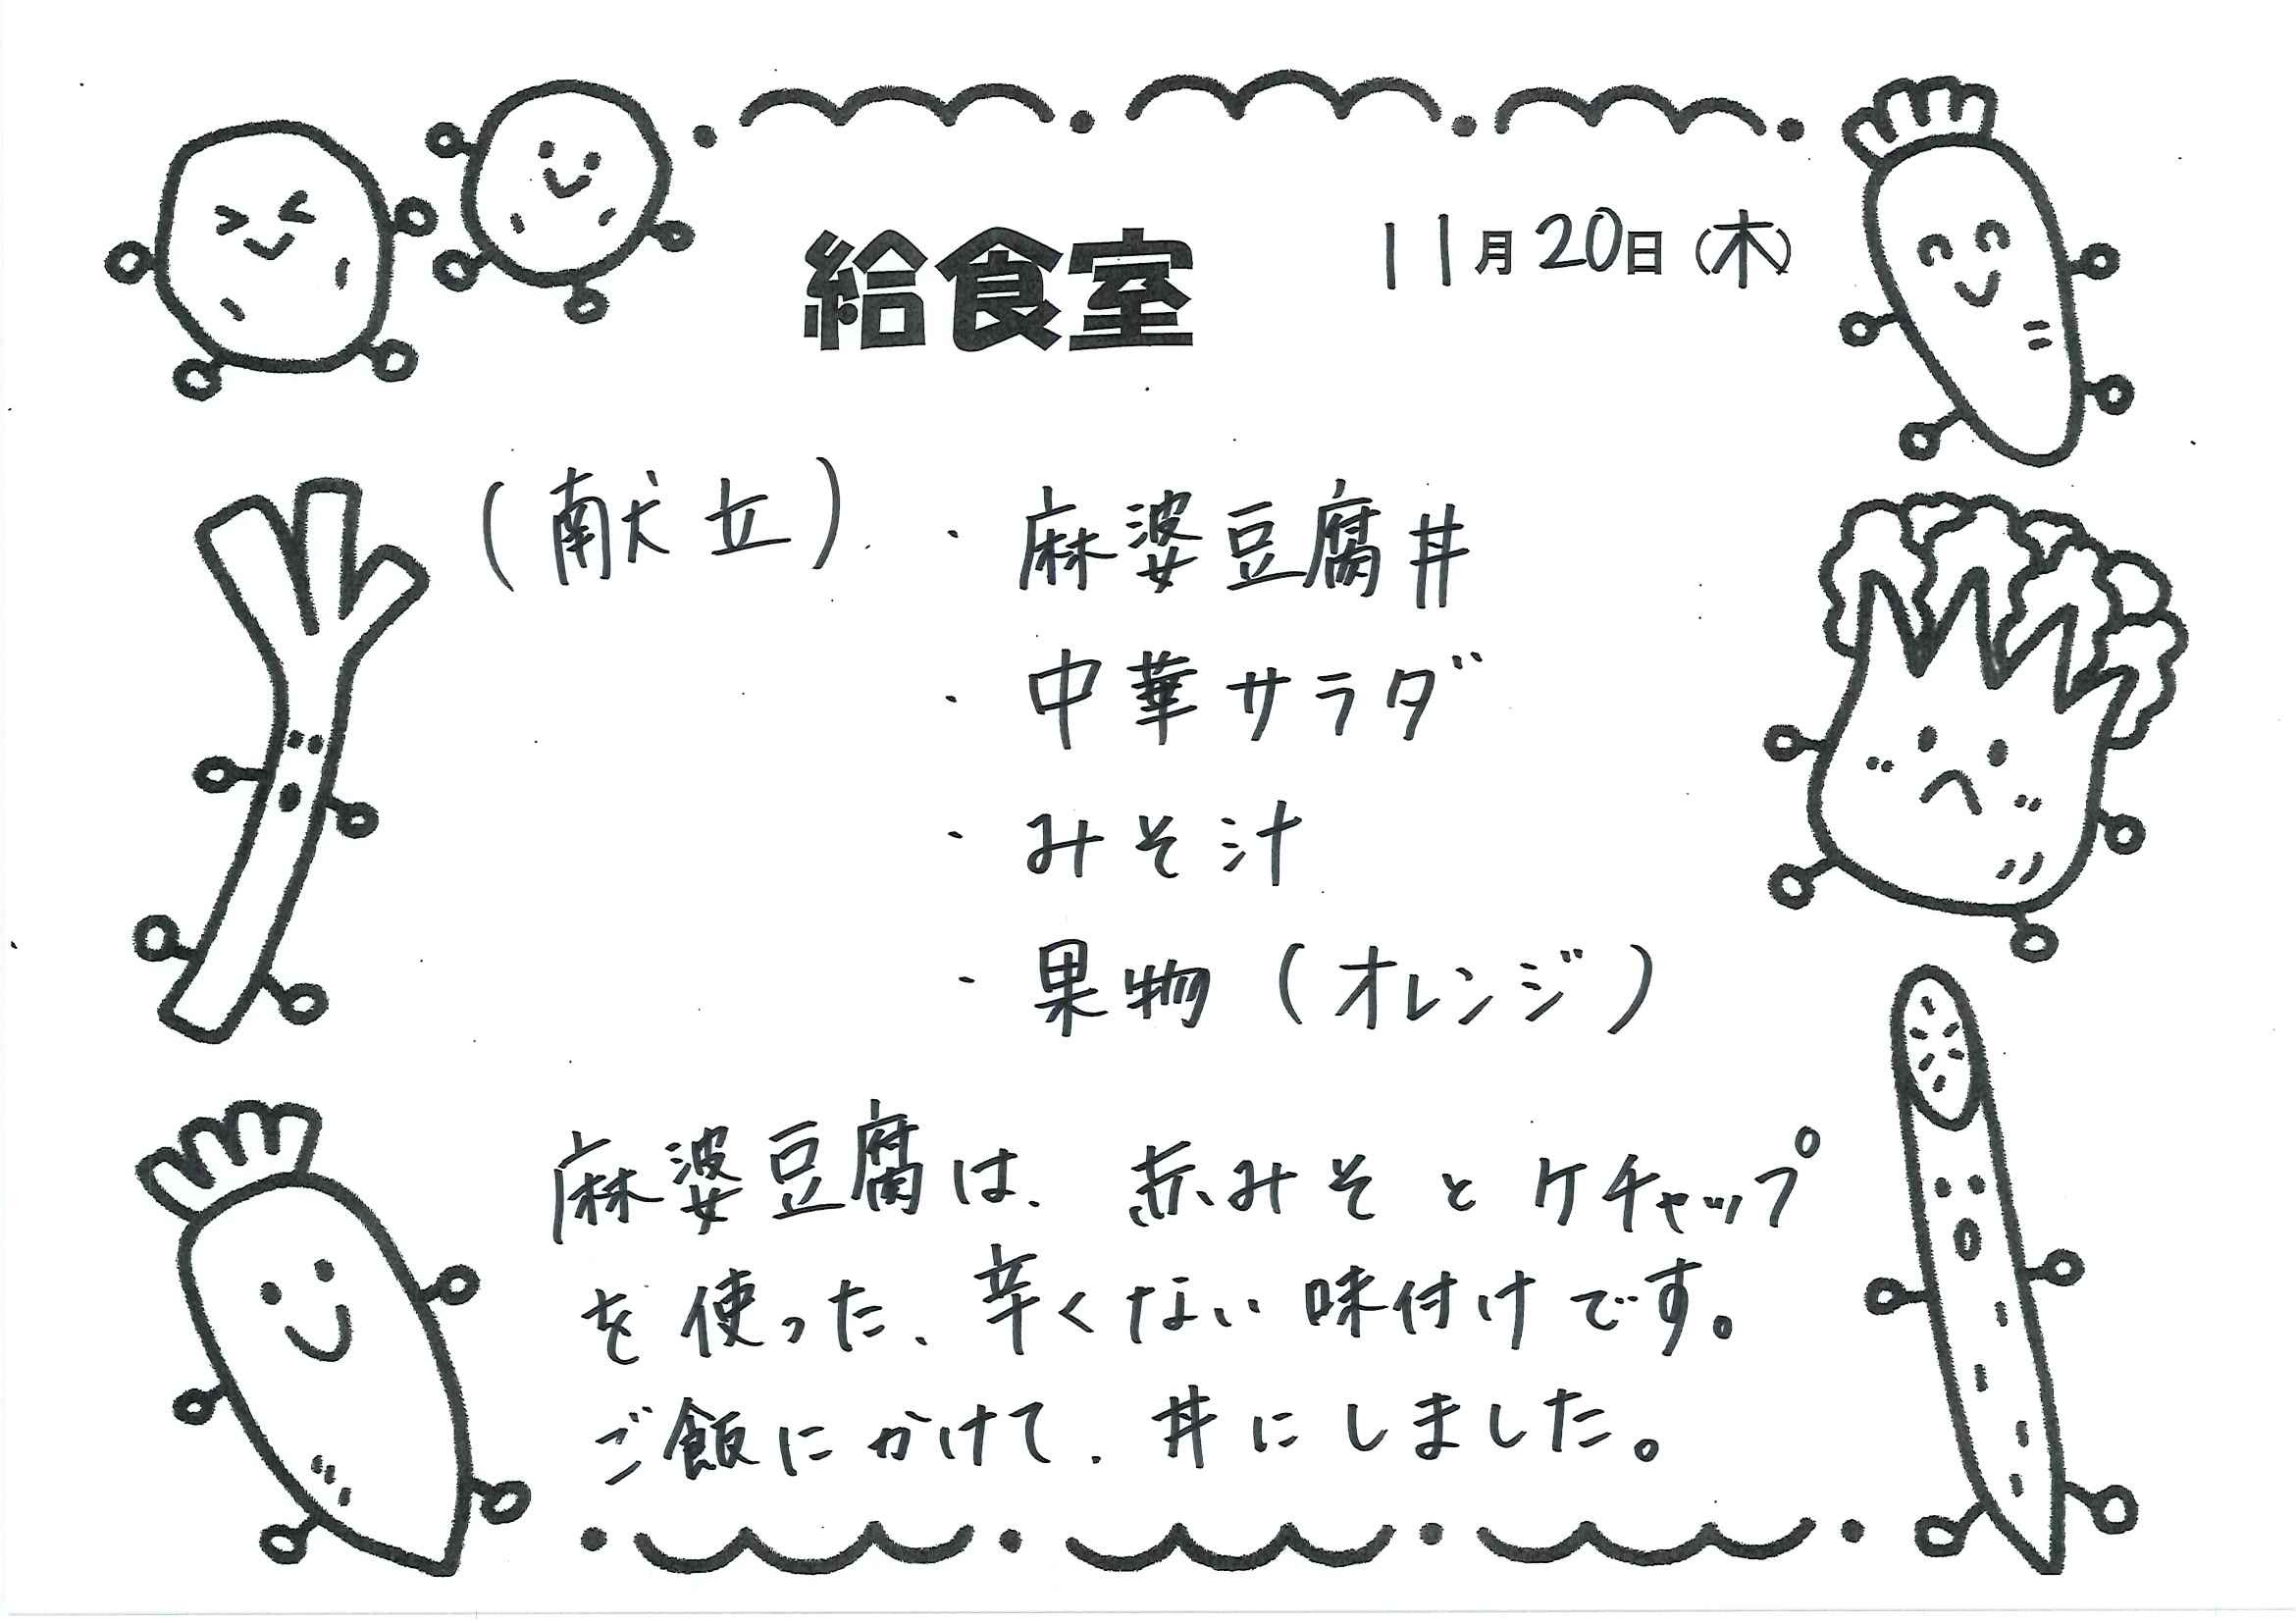 給食室
11月20日(木)
(献立)・麻婆豆腐丼
・中華サラダ
・みそ汁
・果物(オレンジ)
麻婆豆腐は、赤みそとケチャップ
を使った、辛くない味付けです。
ご飯にかけて、丼にしました。